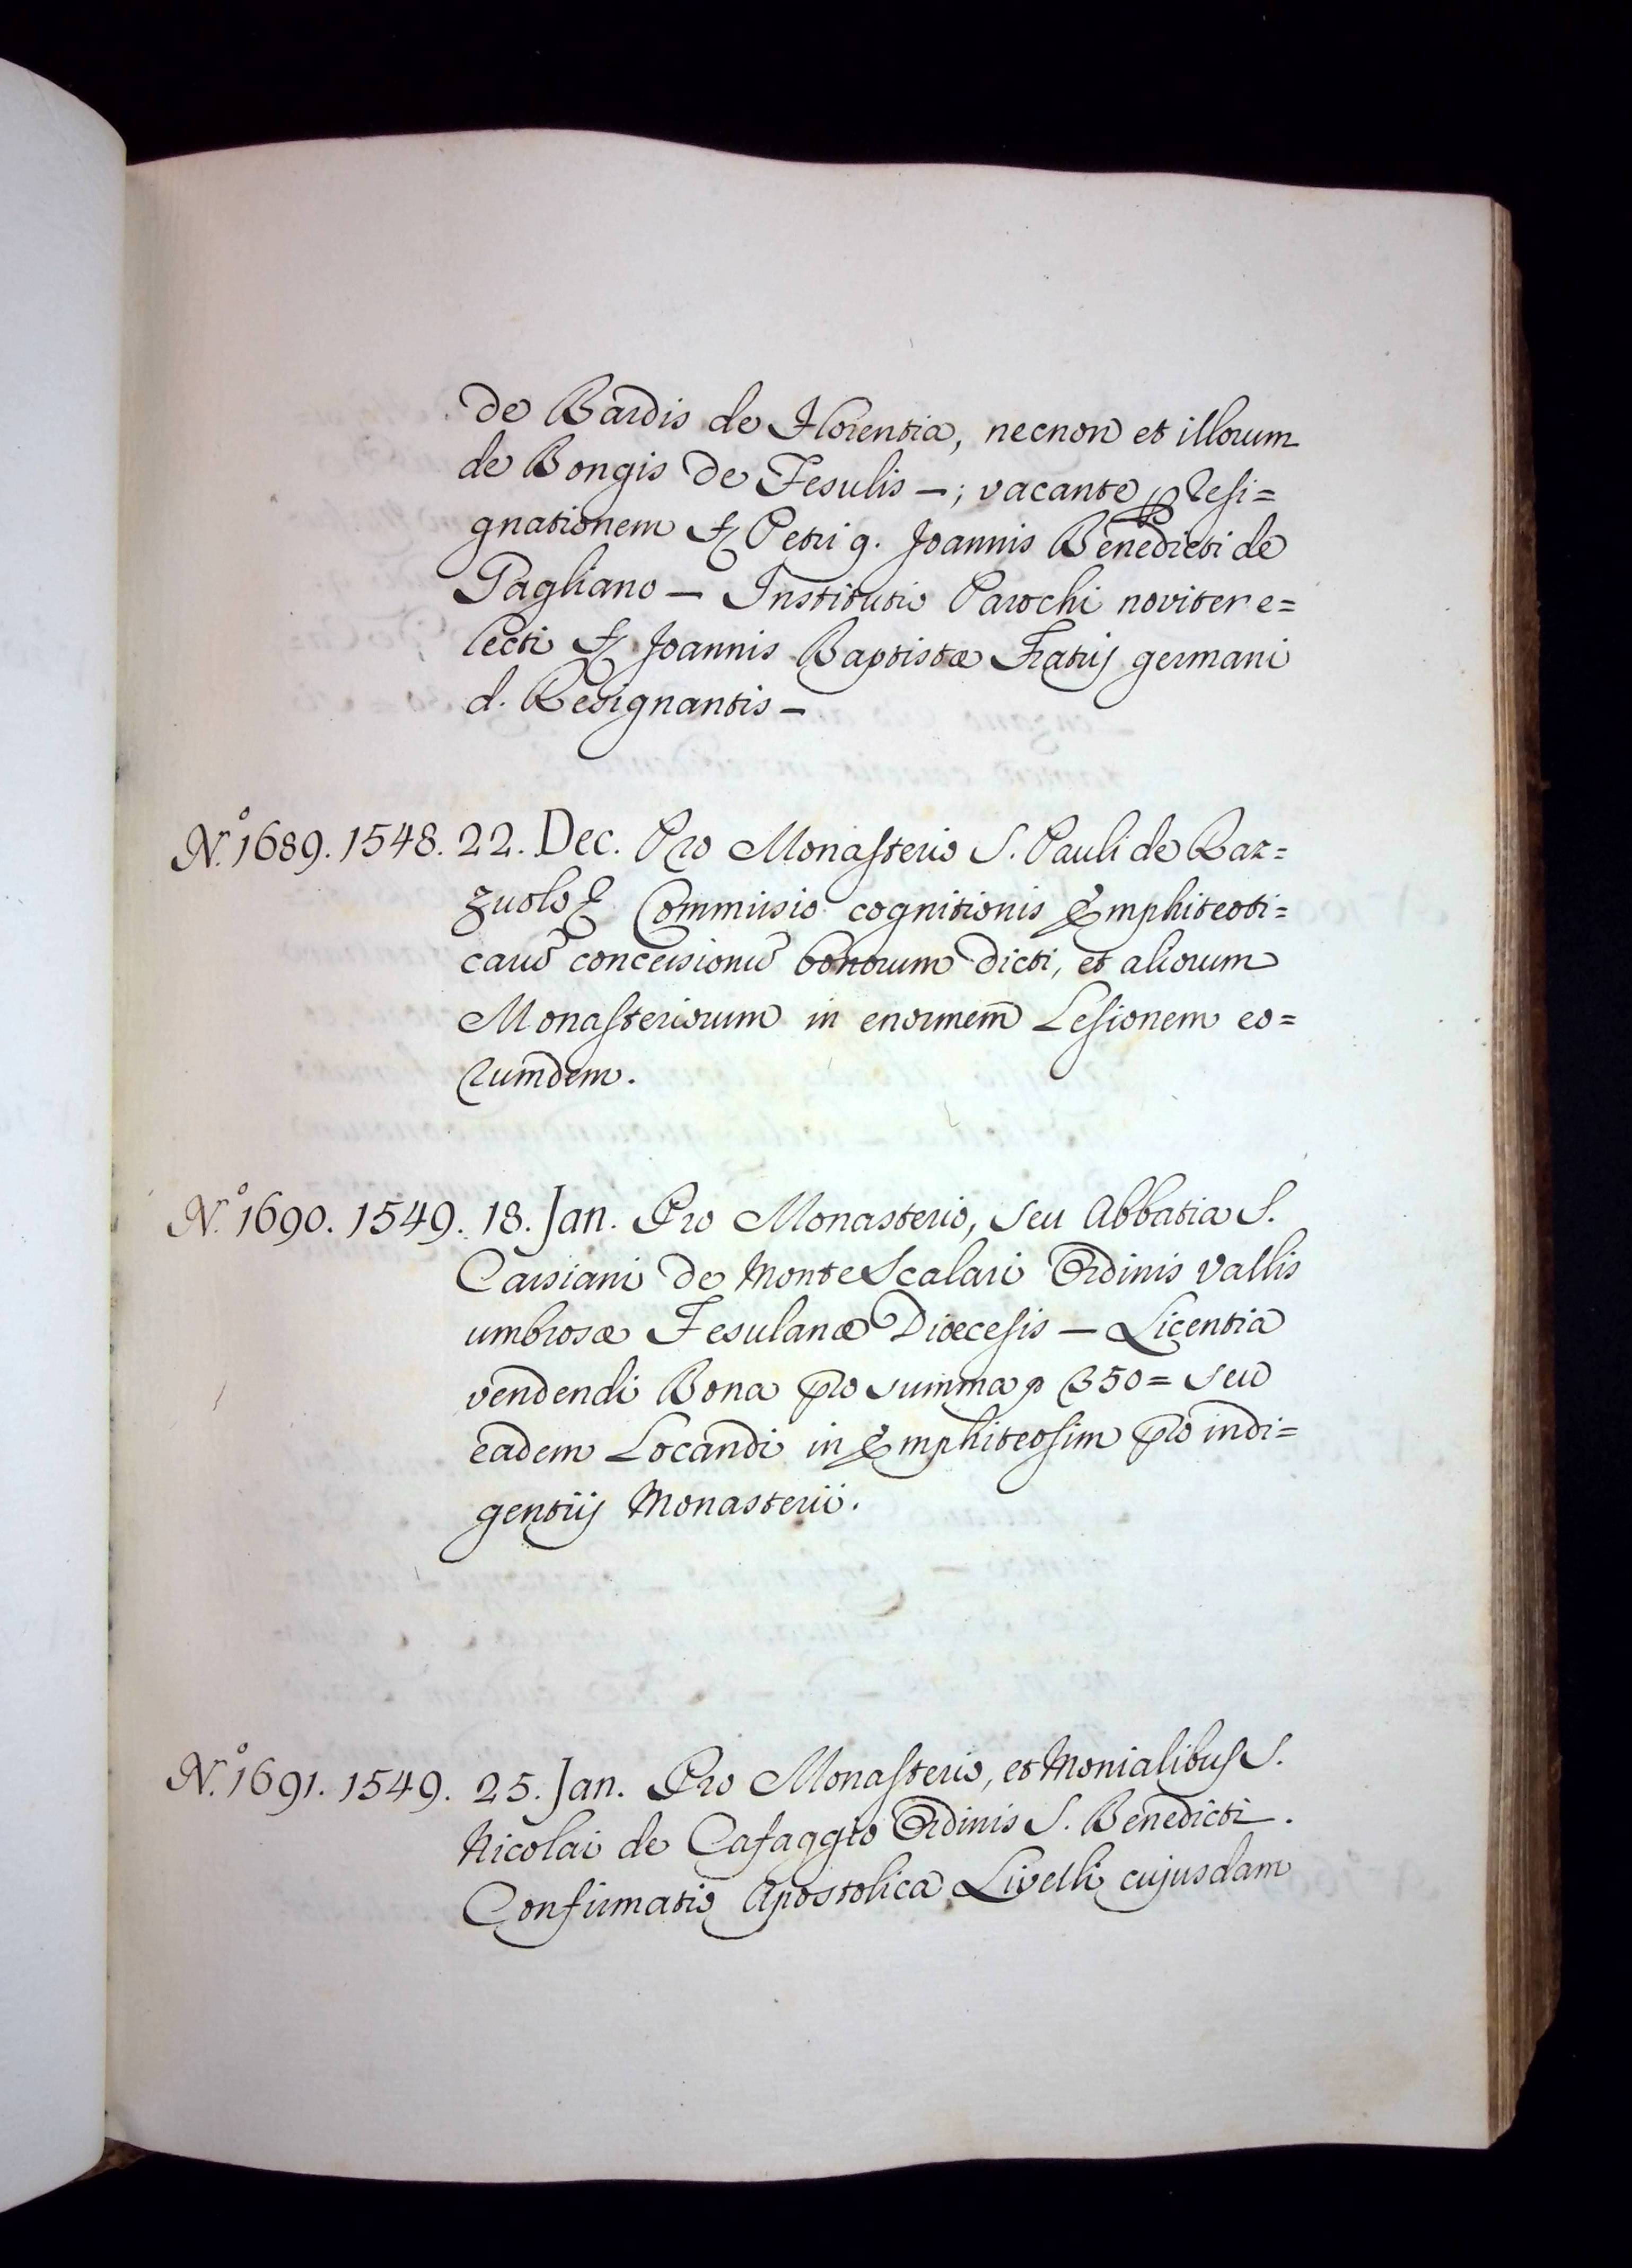 de Bardis de Florentia, necnon et illorum
de Bongis de Fesulis –; vacante p Resi=
gnationem Petri q. Joannis Benedicti de
Pagliano – Institutio Parochi noviter e=
lecti Joannis Baptistæ Fratrij germani
d. Resignantis –
N.º 1689. 1548. 22. Dec. Pro Monasterio S. Pauli de Raz=
zuolo Commissio cognitionis Emphiteoti=
carū concessionū bonorum dicti, et aliorum
Monasteriorum in enormem̄ Lesionem eo=
rumdem.
N.º 1690. 1549. 18. Jan. Pro Monasterio, seu Abbatia S.
Cassiani de Monte Scalari Ordinis Vallis
umbrosæ Fesulanæ Diœcesis – Licentia
vendendi Bona pro summa 350= seu
eadem Locandi in Emphiteosim pro indi=
gentiij Monasterii.
N.º 1691. 1549. 25. Jan. Pro Monasterio, et Monialibus S.
Nicolai de Cafaggio Ordinis S. Benedicti.
Confirmatio Apostolica Livelli cujusdam